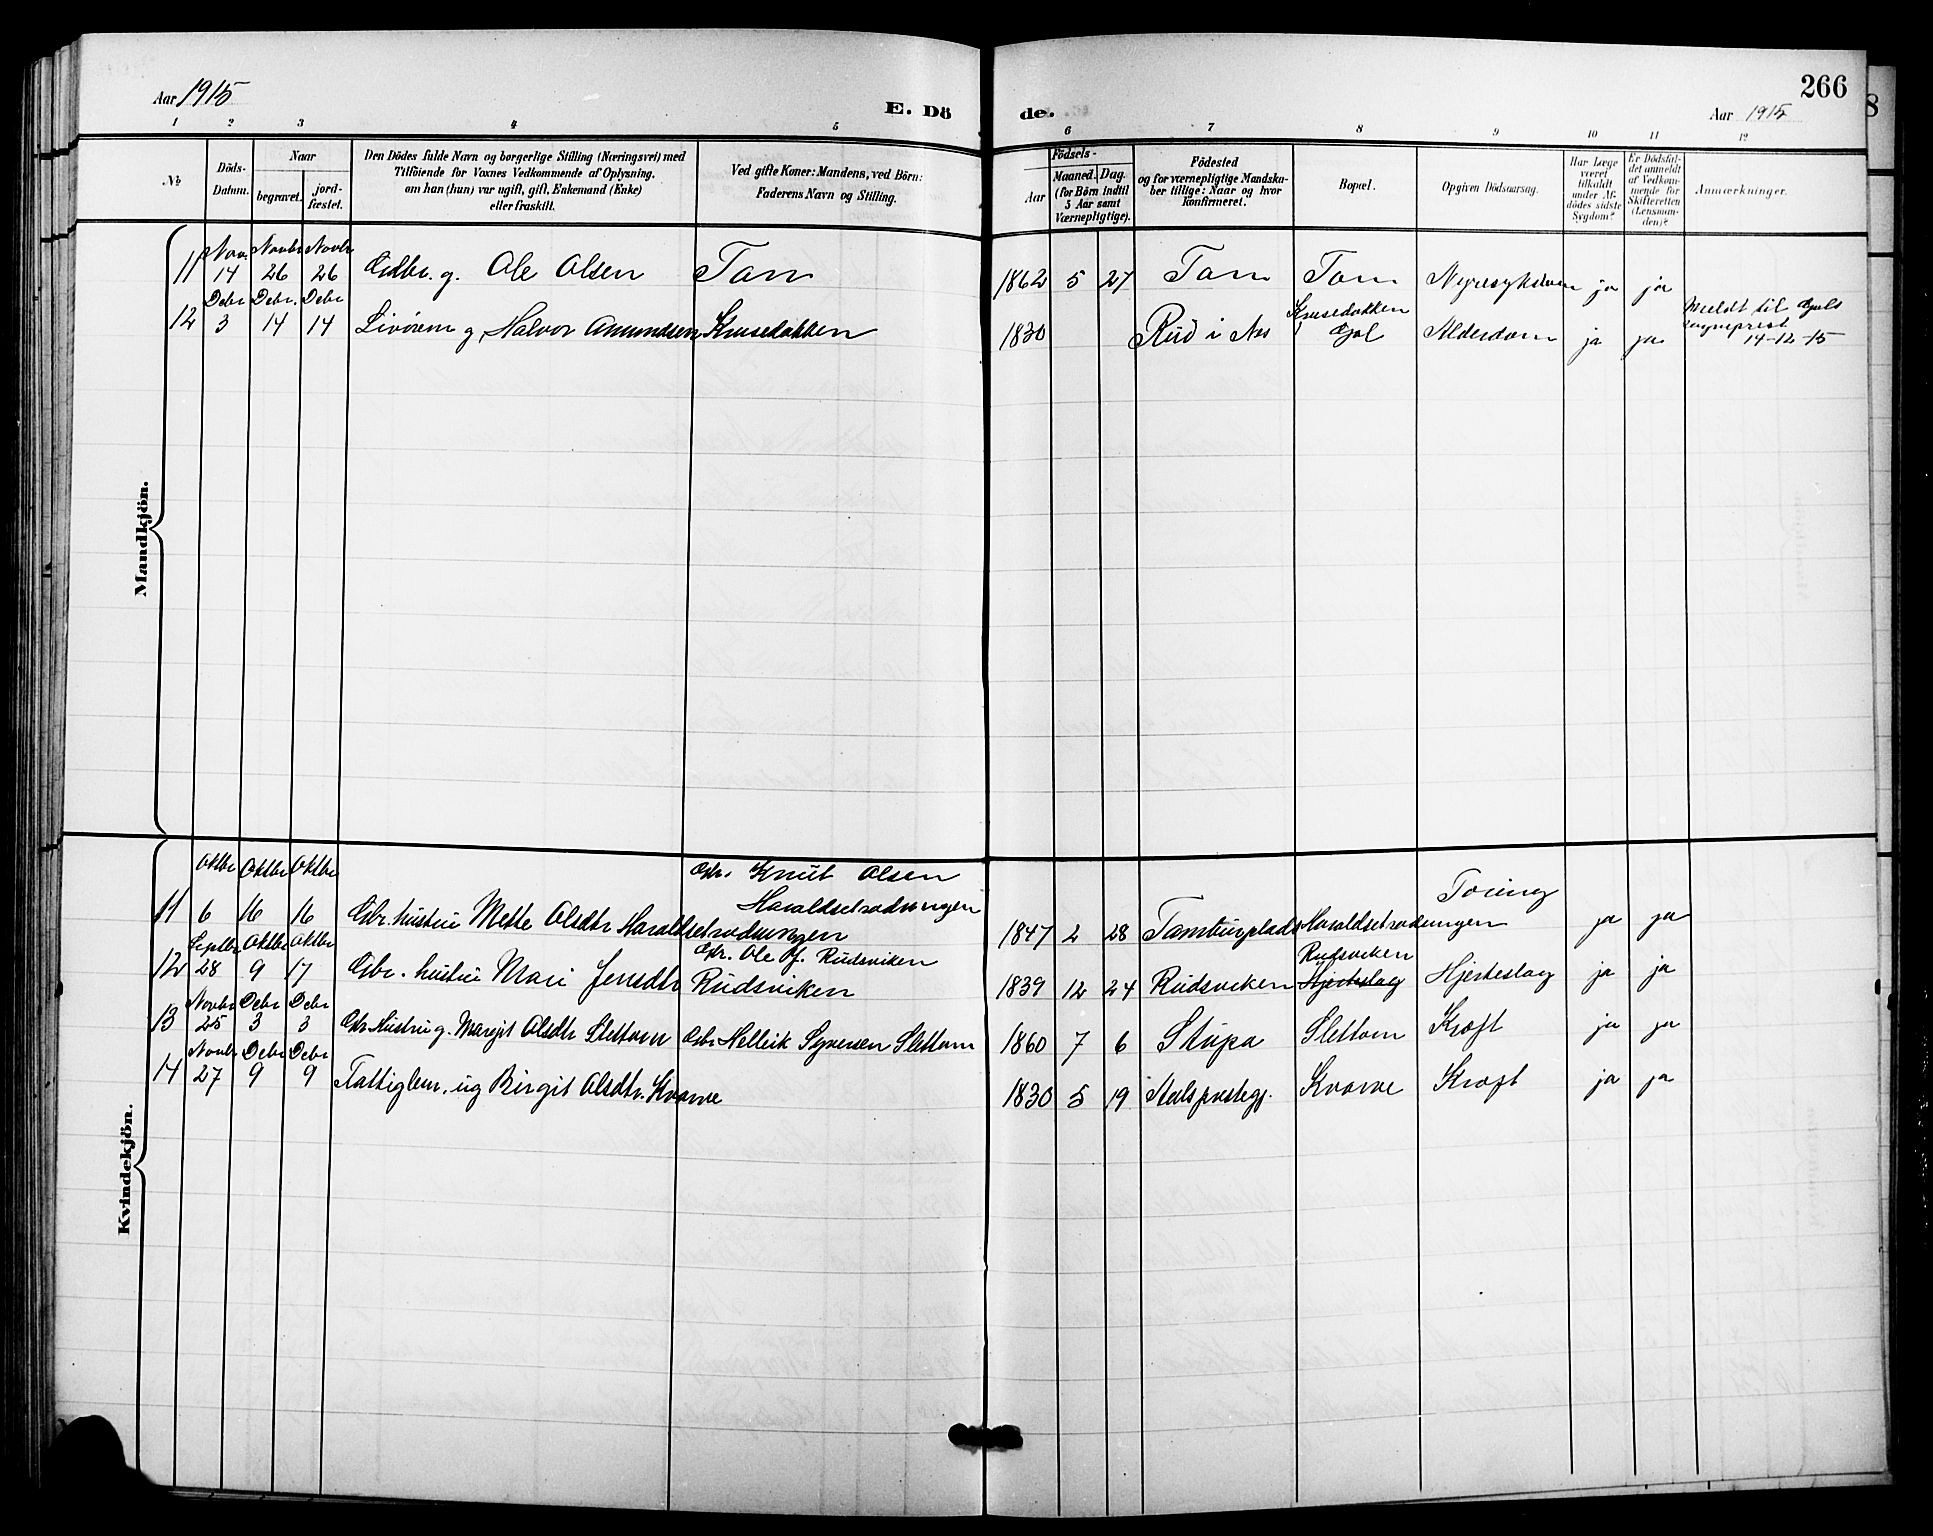 Aar 1915
E. Dö
de.
266
Aar 1915
8
1 2 3 4 5
6 7 8 9 10 11 12
No
Döds-
Datum.
Naar
begravet.
jord-
fæstet.
Den Dödes fulde Navn og borgerlige Stilling (Næringsvei) med
Tilföiende for Voxnes Vedkommende af Oplysning,
om han (hun) var ugift, gift, Enkemand (Enke)
eller fraskilt.
Ved gifte Koner: Mandens, ved Börn:
Faderens Navn og Stilling.
Födsels-
Aar
Maaned. Dag.
(for Börn indtil
5 Aar samt
Værnepligtige).
Födested
og for værnepligtige Mandsku-
ber tillige: Naar og hvor
konfirmeret.
Bopæl.
Opgiven Dödsaarsag.
Har Læge
været
tilkaldt
under Af-
dödes sidste
Sygdom?
Er Dödsfal-
det anmeldt
af Vedkom-
mende for
Skifteretten
(Lensman-
den)?
Anmærkninger.
Mandkjön.
Novbr Novbr
11 14 26 26 Gdbr. g. Ole Olsen Tam 1862 5 27 Tam Tam ja ja
Debr Debr. Debr
12 3 14 14 g. Halvor Amundsen Krusedokken 1830 Rud i Nes Krusedokken
Gol Alderdom ja ja
Meldt til Gols
sogneprest
14-12-15
Kvindekjön.
Oktbr Oktbr Oktbr
Knut Olsen
Haraldsetrodningen
11 6 16 16 Gbr. hustru Mette Olsdtr Haraldsetrodningen 1847 2 28 Haraldsetrodningen Tæring ja ja
Septbr Oktbr Oktbr
Gbr. Ole J. Rudsviken
12 28 9 17 Gbr. hustru Mari Jensdtr Rudsviken 1839 12 24 Rudsviken Rudsviken
Hjerteslag Hjerteslag ja ja
Novbr Debr Debr
13 25 3 3 Gbr. Hustru g. Margit Olsdtr Slettom Gbr Hellik Syversen Slettom 1860 7 6 Stupa Slettom Kræft ja ja
Novbr Debr Debr
14 27 9 9 Fattiglem. ug Birgit Olsdtr. Kvarve 1830 5 19 Aals prestegj. Kvarve Kræft ja ja